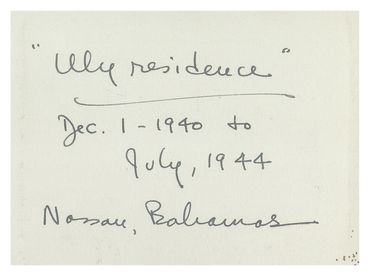 "My residence"
Dec. 1 - 1940 to
July, 1944
Nassau, Bahamas